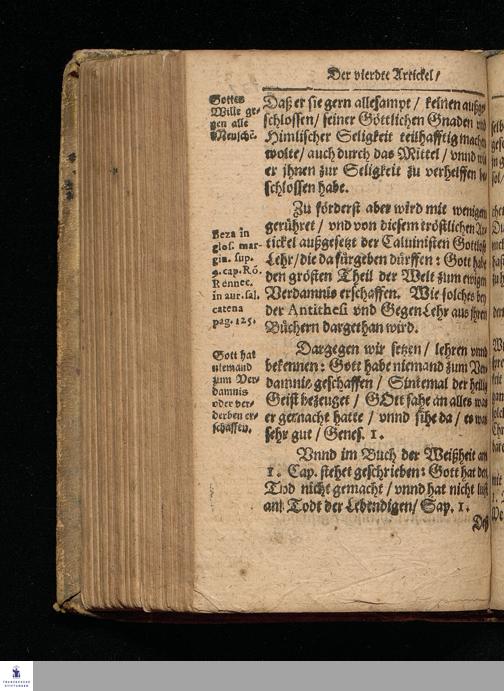 Der vierdte Artickel/
Gottes
Wille ge-
gen alle
Mensche.
Daß er sie gern allesampt / keinen außge
schlossen / seiner Göttlichen Gnaden und
Himlischer Seligkeit teilhafftig machen
wolte/ auch durch das Mittel / vnnd wie
er ihnen zur Seligkeit zu verhelffen be
schlossen habe.
Beza in
glos. mar-
gin. sup.
9. cap. Rö.
Rennec.
in aur. sal.
catena
pag. 125.
Zu förderst aber wird mit wenigem
gerühret / vnd von diesem tröstlichen Ar
tickel außgesetzt der Caluinisten Gottloß
Lehr/ die da fürgeben dürffen : Gott habe
den grösten Theil der Welt zum ewigen
Verdamnis erschaffen. Wie solches bey
der Antithesi vnd GegenLehr aus ihren
Büchern dargethan wird.
Gott hat
niemand
zum Ver-
damnis
oder ver-
derben er-
schaffen.
Dargegen wir setzen / lehren vnnd
bekennen: Gott habe niemand zum Ver
damnis geschaffen / Sintemal der heilig
Geist bezeuget / GOtt sahe an alles was
er gemacht hatte / vnnd sihe da / es war
sehr gut / Genes. 1.
Vnnd im Buch der Weißheit am
1. Cap. stehet geschrieben: Gott hat den
Tod nicht gemacht / vnnd hat nicht lust
am Todt der Lebendigen/ Sap. 1.
Deß
FRANCKESCHE
STIFTUNGEN